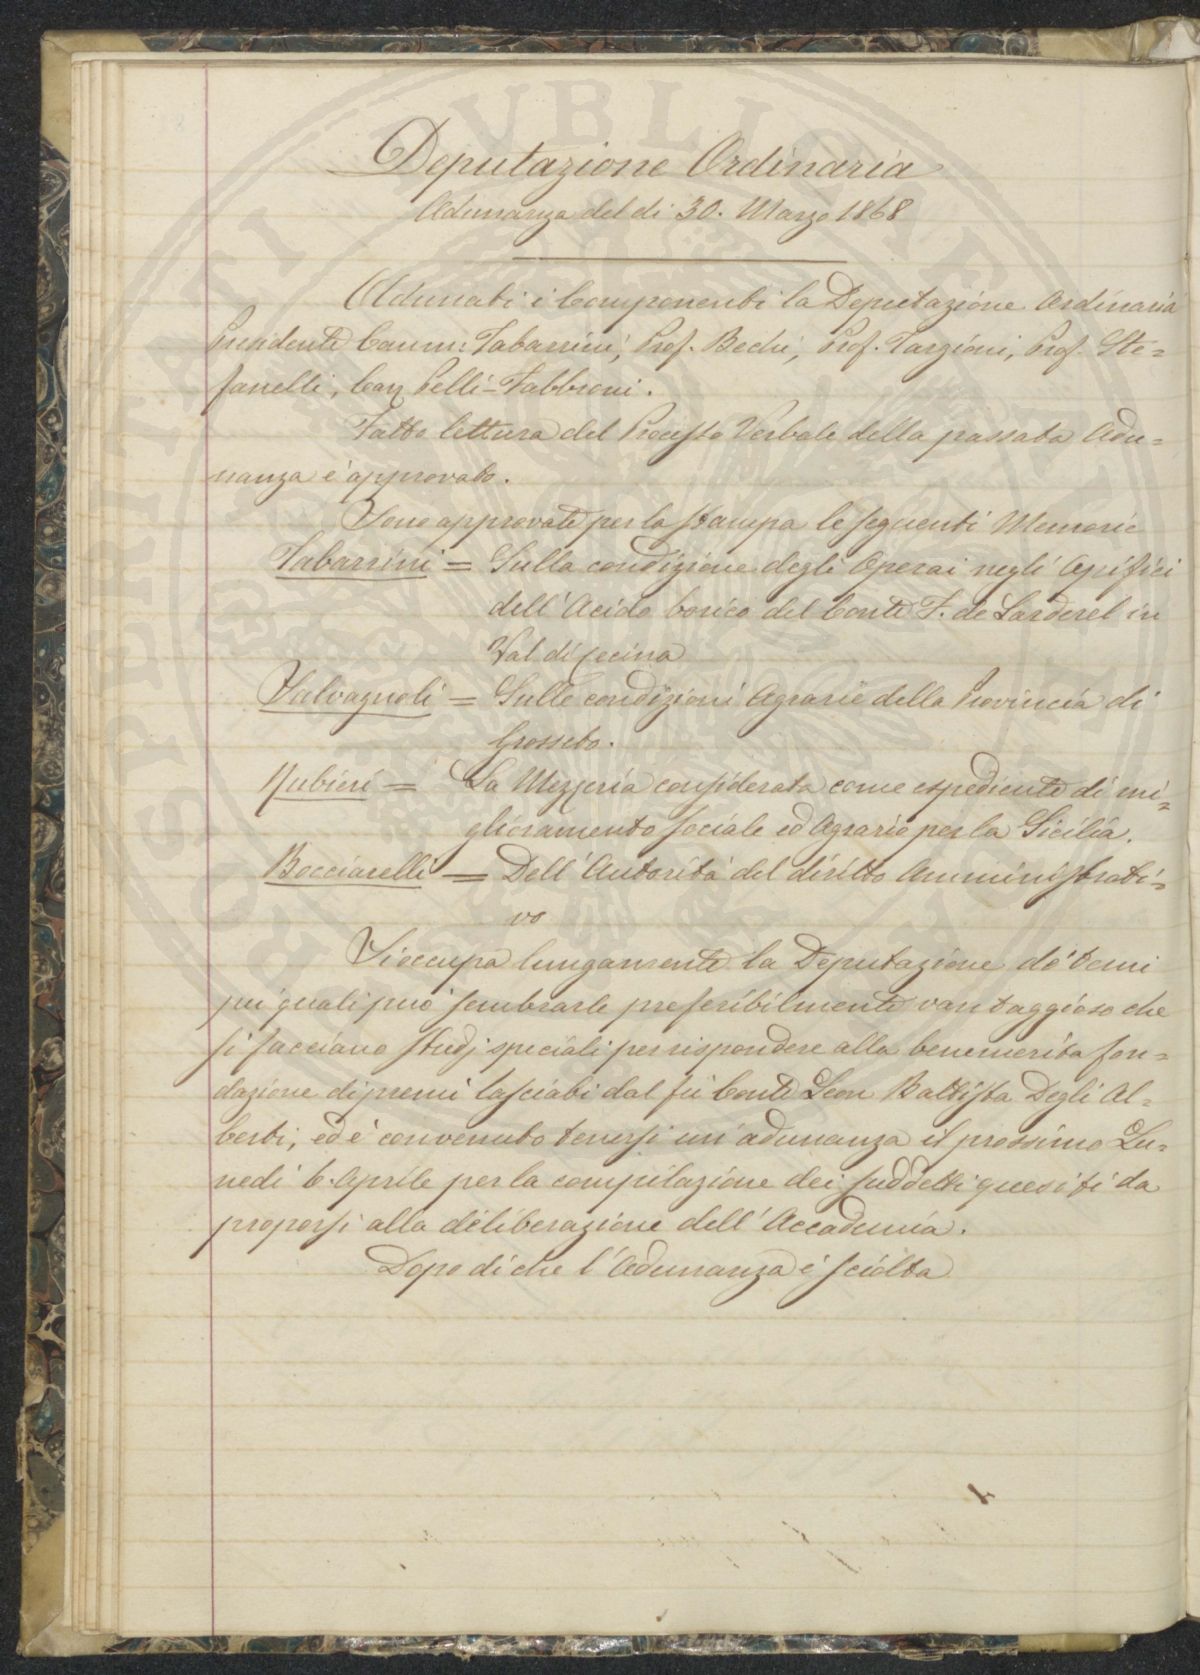 Deputazione Ordinaria
Adunanza del dì 30. Marzo 1868
Adunati i Componenti la Deputazione Ordinaria
Presidente Comm: Tabarrini, Prof. Bechi, Prof. Targioni, Prof. Ste=
fanelli, Cav Pelli-Fabbroni.
Fatto lettura del Processo Verbale della passata Adu=
nanza è approvato.
Sono approvate per la stampa le seguenti Memorie
Tabarrini = Sulla condizione degli Operai negli Opifici
dell'Acido borico del Conte F. de Larderel in
Val di Cecina
Salvagnoli = Sulle condizioni Agrarie della Provincia di
Grosseto.
Rubieri = La Mezzeria considerata come espediente di mi=
glioramento sociale ed Agrario per la Sicilia.
Bocciarelli = Dell'Autorità del diritto Amministrati=
vo
Si occupa lungamente la Deputazione de' temi
pei quali può sembrarle preferibilmente vantaggioso che
si facciano studj speciali per rispondere alla benemerita fon=
dazione di premi lasciati dal fu Conte Leon Battista Degli Al=
berti, ed è convenuto tenersi un'adunanza il prossimo Lu=
nedì 6. Aprile per la compilazione dei suddetti quesiti da
proporsi alla deliberazione dell'Accademia.
Dopo di che l'Adunanza è sciolta